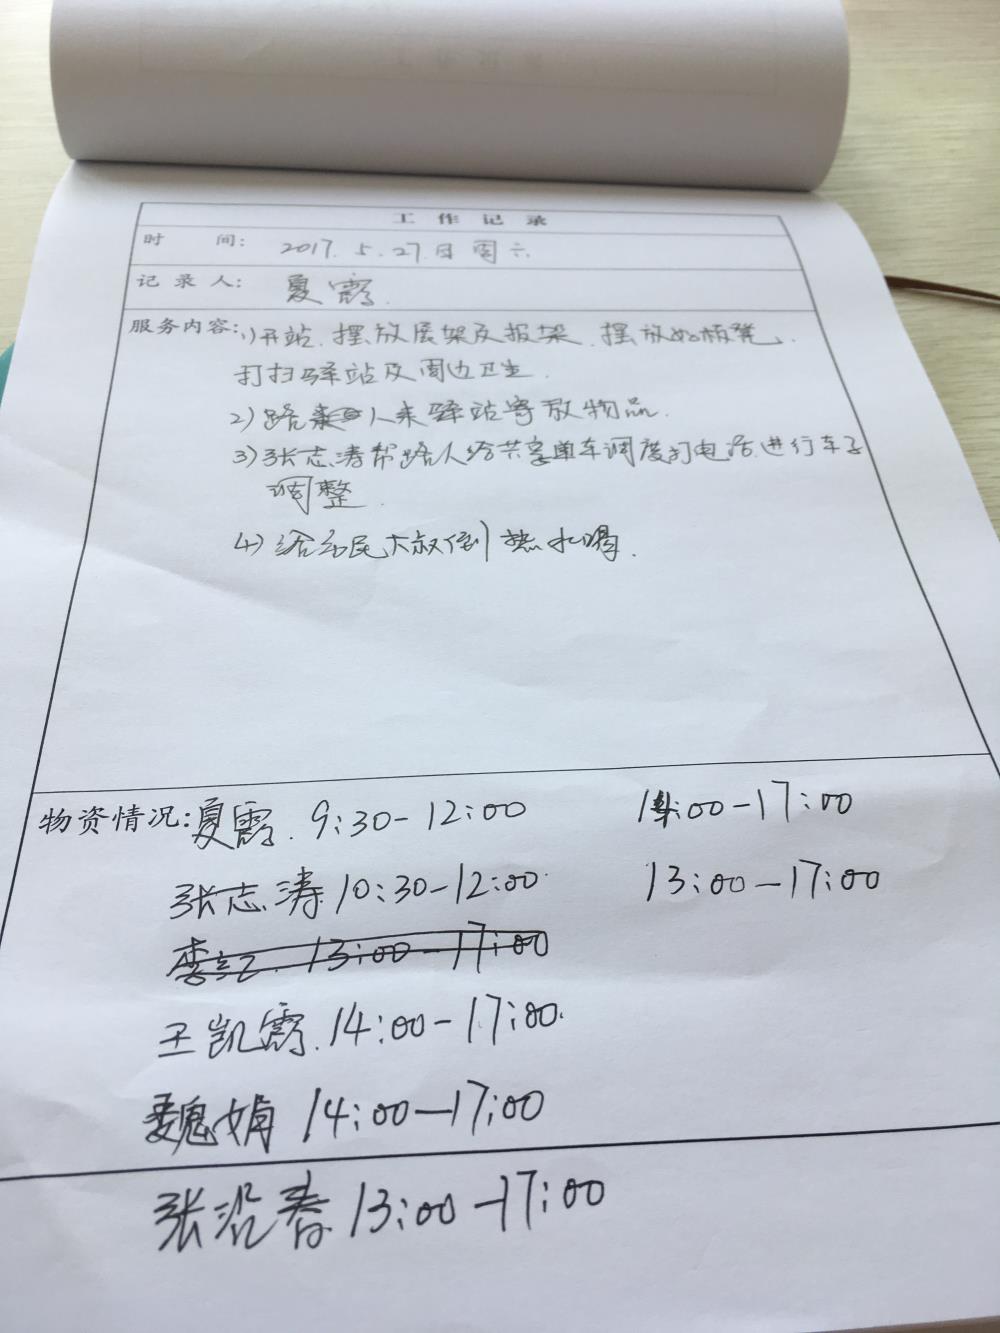 工作记录
时 间: 2017.5.27.日 周六
记录人: 夏霞.
服务内容: 1)开站.摆放展架及报架.摆放如板凳、
打扫驿站及周边卫生.
2)路人来驿站寄放物品.
3)张志涛帮路人给共享单车调度打电话进行车子
调整.
4)给市民大叔倒热水喝.
物资情况: 夏霞. 9:30-12:00 14:00-17:00
张志涛 10:30-12:00. 13:00-17:00
13:00-17:00
王凯霞. 14:00-17:00.
魏娟 14:00-17:00
张沿春 13:00-17:00